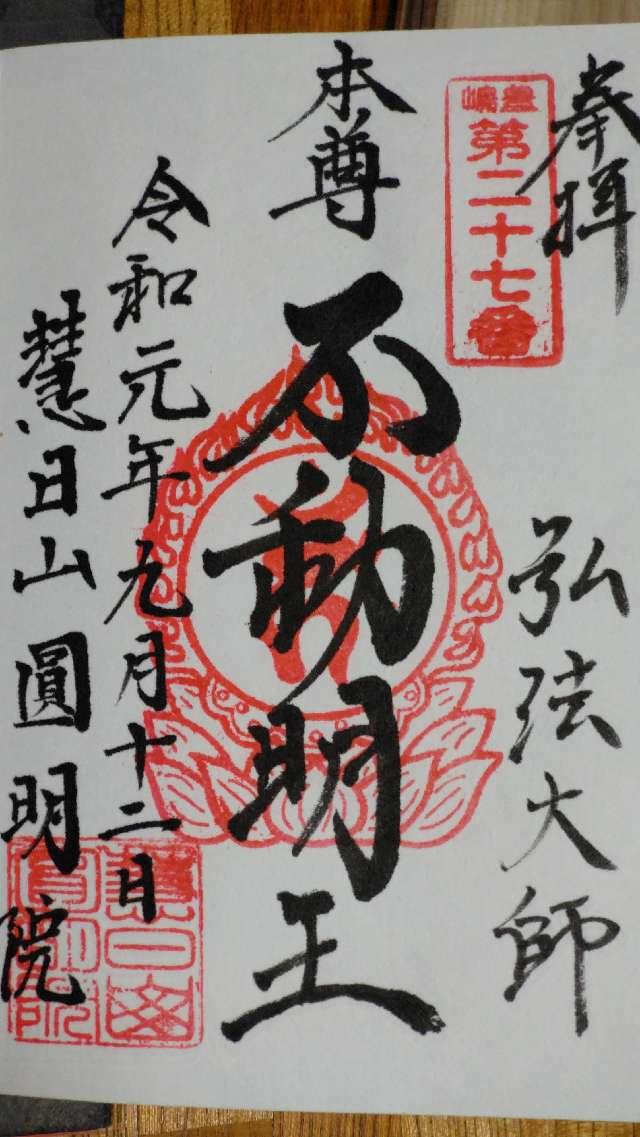 奉拝
弘法大師
豊嶋
第二十七番
本尊
不動明王
令和元年九月十二日
慧日山圓明院